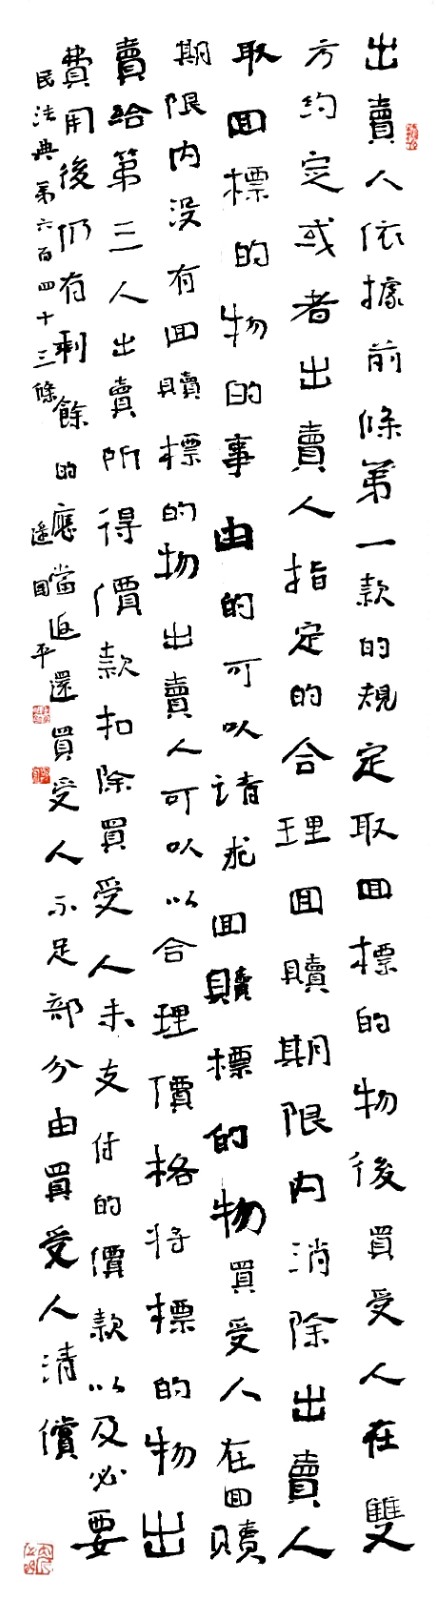 出賣人依據前條第一款的規定取回標的物後買受人在雙
方約定或者出賣人指定的合理回贖期限内消除出賣人
取回標的物的事由的可以請求回贖標的物買受人在回贖
期限内没有回贖標的物出賣人可以以合理價格将標的物出
賣給第三人出賣所得價款扣除買受人未支付的價款以及必要
費用後仍有剩餘的應當返還買受人不足部分由買受人清償
民法典第六百四十三條
平